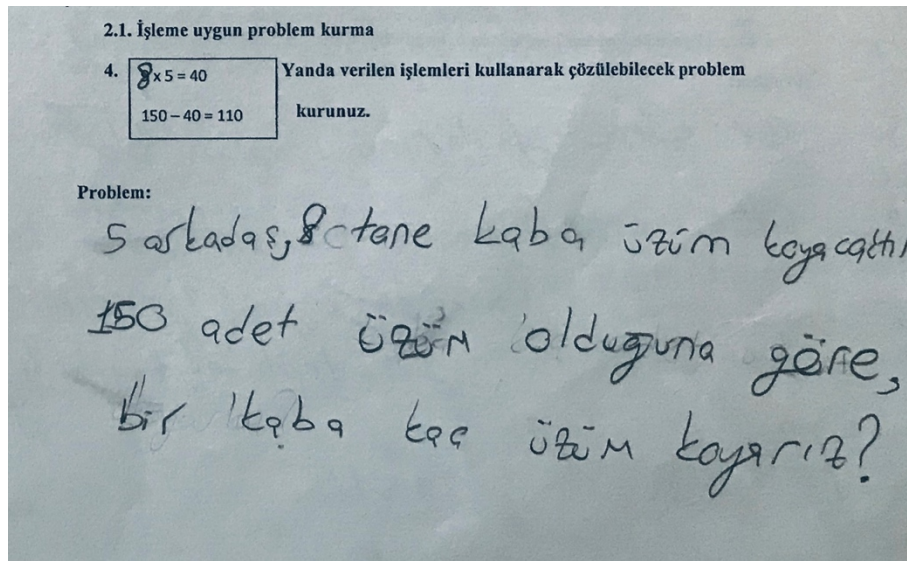 2.1. İşleme uygun problem kurma
4. 8 x 5 = 40 Yanda verilen işlemleri kullanarak çözülebilecek problem
150 – 40 = 110 kurunuz.
Problem:
5 arkadaş, 8 tane kaba üzüm koyacaktı
150 adet üzüm olduğuna göre,
bir kaba kaç üzüm koyarız?